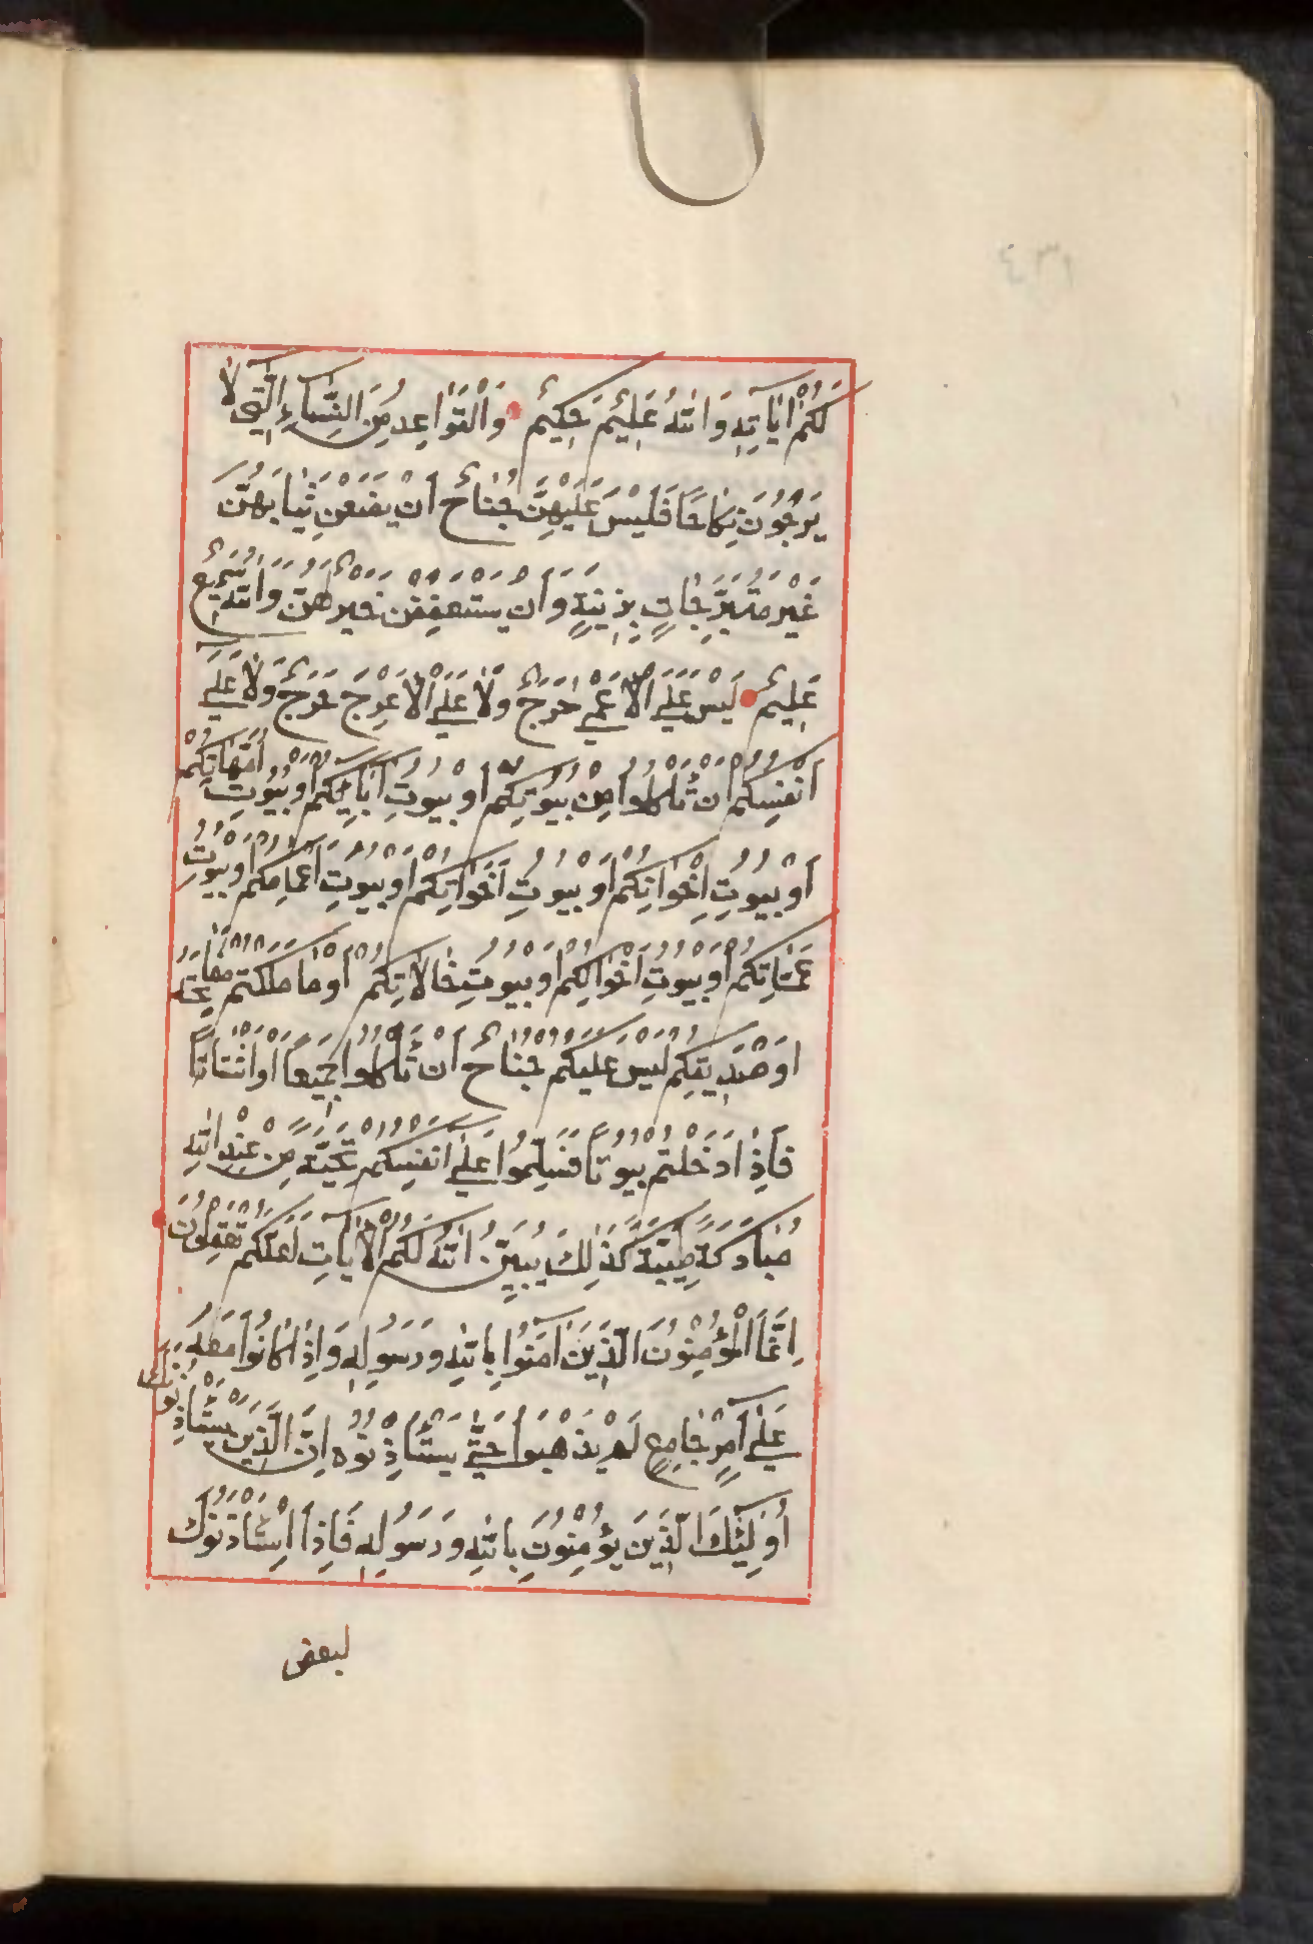 لَكُمْ اٰيَاتِهِ وَاللّٰهُ عَلِيْمٌ حَكِيْمٌ وَالْقَوَاعِدُ مِنَ النِّسَاءِ الّٰتِى لَا
يَرْجُوْنَ نِكَاحًا فَلَيْسَ عَلَيْهِنَّ جُنَاحٌ اَنْ يَضَعْنَ ثِيَابَهُنَّ
غَيْرَ مُتَبَرِّجَاتٍ بِزِيْنَةٍ وَاَنْ يَسْتَعْفِفْنَ خَيْرٌ لَهُنَّ وَاللّٰهُ سَمِيْعٌ
عَلِيْمٌ لَيْسَ عَلَى الْاَعْمٰى حَرَجٌ وَلَا عَلَى الْاَعْرَجِ حَرَجٌ وَلَا عَلٰى
اَنْفُسِكُمْ اَنْ تَأْكُلُوْا مِنْ بُيُوْتِكُمْ اَوْ بُيُوْتِ اٰبَائِكُمْ اَوْ بُيُوْتِ اُمَّهَاتِكُمْ
اَوْ بُيُوْتِ اِخْوَانِكُمْ اَوْ بُيُوْتِ اَخَوَاتِكُمْ اَوْ بُيُوْتِ اَعْمَامِكُمْ اَوْ بُيُوْتِ
عَمَّاتِكُمْ اَوْ بُيُوْتِ اَخْوَالِكُمْ اَوْ بُيُوْتِ خَالَاتِكُمْ اَوْ مَا مَلَكْتُمْ مَفَاتِحَهُ
اَوْ صَدِيْقِكُمْ لَيْسَ عَلَيْكُمْ جُنَاحٌ اَنْ تَأْكُلُوْا جَمِيْعًا اَوْ اَشْتَاتًا
فَاِذَا دَخَلْتُمْ بُيُوْتًا فَسَلِّمُوْا عَلٰى اَنْفُسِكُمْ تَحِيَّةً مِنْ عِنْدِ اللّٰهِ
مُبَارَكَةً طَيِّبَةً كَذٰلِكَ يُبَيِّنُ اللّٰهُ لَكُمُ الْاٰيَاتِ لَعَلَّكُمْ تَعْقِلُوْنَ
اِنَّمَا الْمُؤْمِنُوْنَ الَّذِيْنَ اٰمَنُوْا بِاللّٰهِ وَرَسُوْلِهِ وَاِذَا كَانُوْا مَعَهُ
عَلٰى اَمْرٍ جَامِعٍ لَمْ يَذْهَبُوْا حَتّٰى يَسْتَأْذِنُوْهُ اِنَّ الَّذِيْنَ يَسْتَأْذِنُوْنَكَ
اُولٰئِكَ الَّذِيْنَ يُؤْمِنُوْنَ بِاللّٰهِ وَرَسُوْلِهِ فَاِذَا اسْتَأْذَنُوْكَ
لبعض